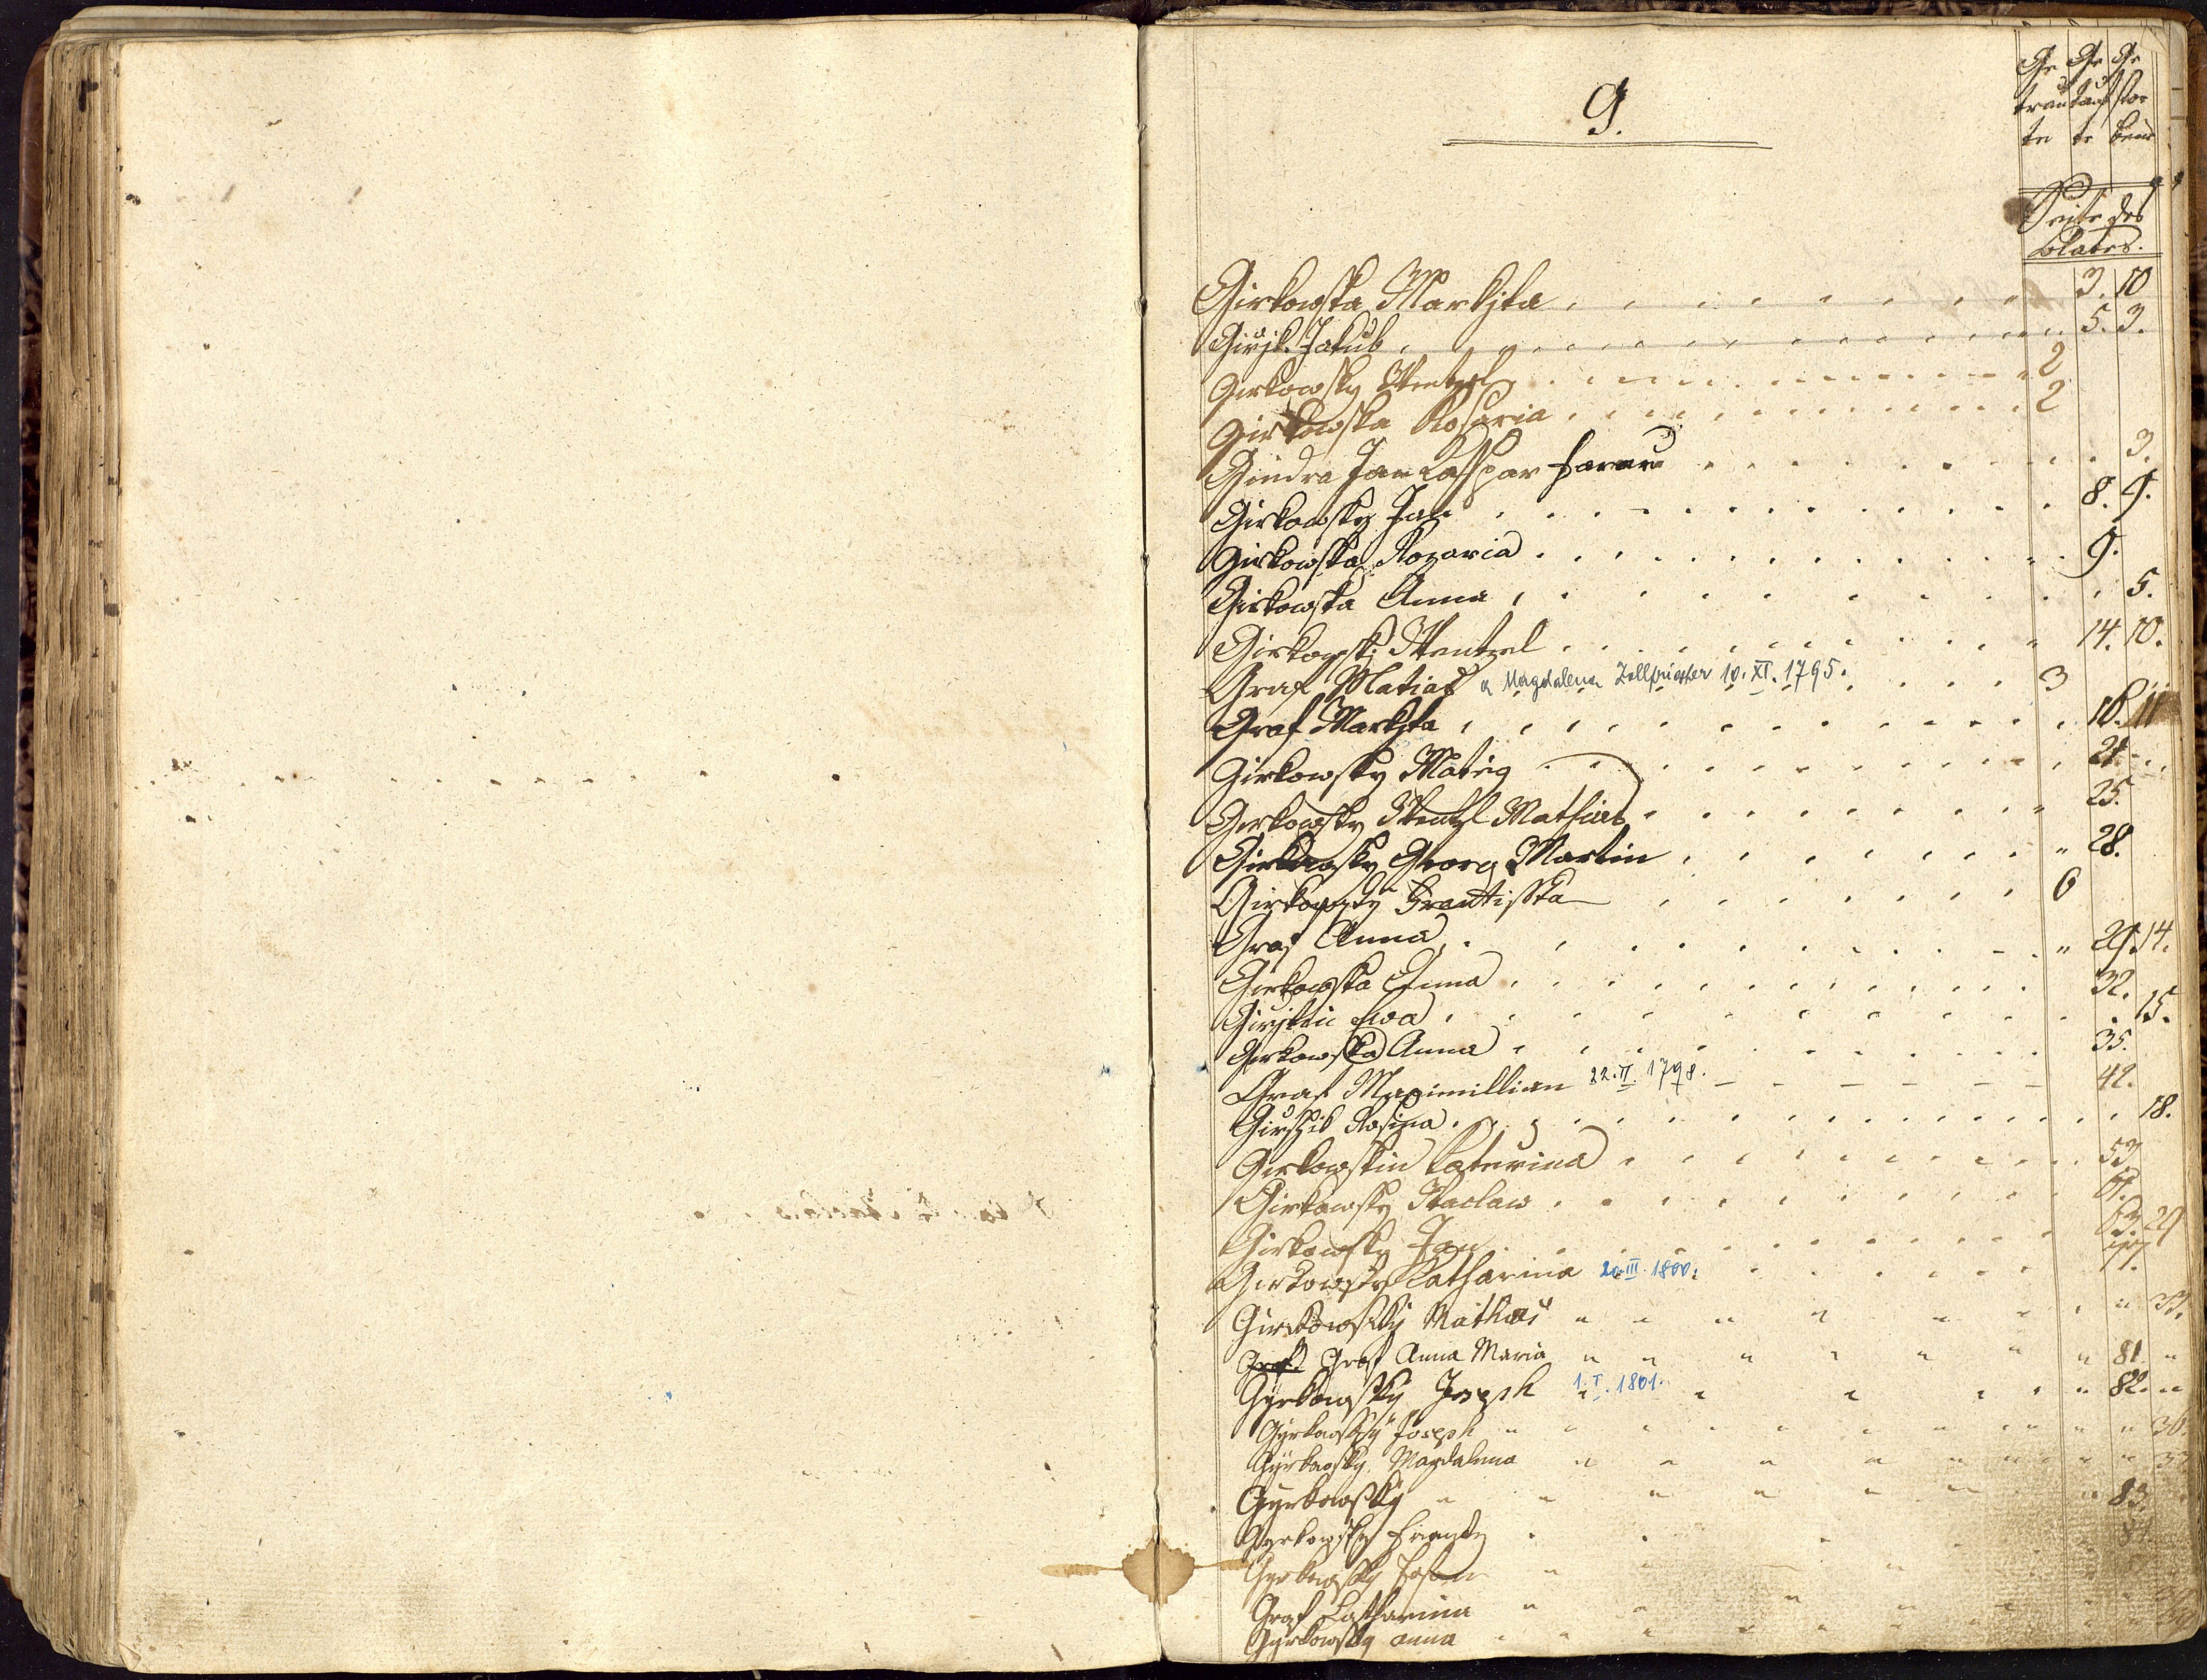 G.
Ge Ge Ge
trau tauf stor
te te bene
Seite des
Blates.
Girkowska Markyta 3. 10
Girzik Jakub 5. 3.
Girkowsky Wentzel 2
Girkowska Rosaria 2
Gindra Jan Casspar 3.
Girkowsky Jan 8. 4.
Girkowska Rozaria 9.
Girkowska Anna 5.
Girkowski Wentzel 14. 10.
Graf Matias a Magdalena Zellpriester 10. XI. 1795. 3
Graf Markyta 16. 11
Girkowsky Matieg 21
Girkowsky Wentzl Mathias 25.
Girkowsky Georg Martin 28.
Girkowsky Frantisska 6
Graf Anna 29. 14.
Girkowska Anna 32.
Ewa 15.
Girkowska Anna 35.
Graf Maximillian 22. II. 1798. 42.
Rosina 18.
Girkowskin Katerina 53
Girkowsky Waclaw 61.
Girkowsky Jan 63. 29
Girkowsky Catharina 20. III. 1800. 77.
Girkowsky Mathias 33.
Graf Graf Anna Maria 81
Gyrkowsky Joseph 1. I. 1801. 82.
Gyrkowsky Joseph 36.
Gyrkowsky Magdalena
Gyrkowsky 83.
Gyrkowsky
Gyrkowsky
Graf Catharina
Gyrkowsky anna